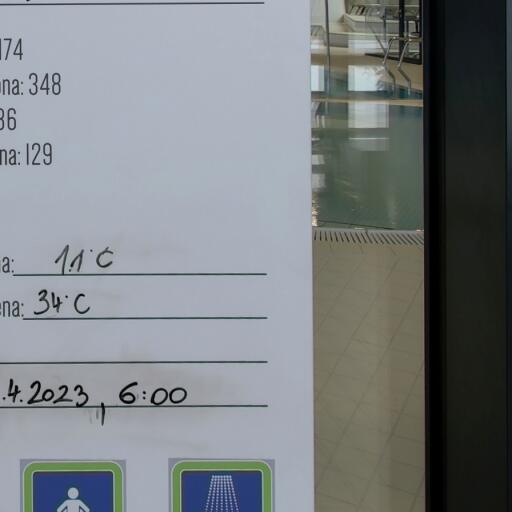 174
ona: 348
36
na: 129
a: 11°C
ena: 34°C
.4.2023, 6:00